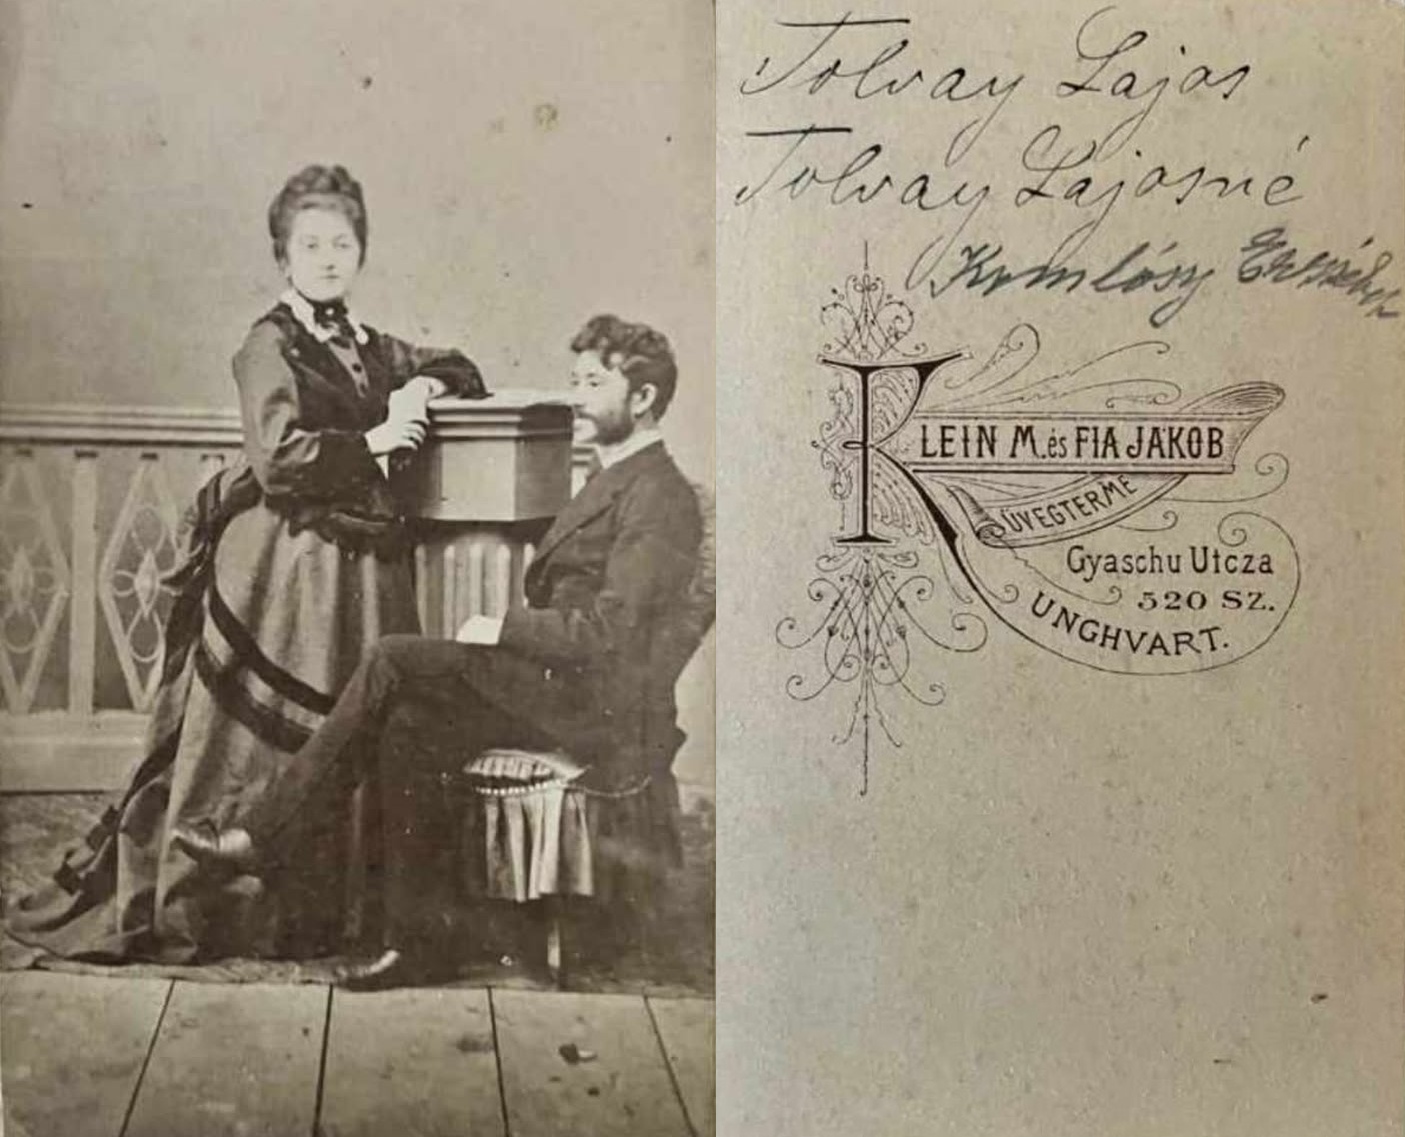 Tolvay Lajos
Tolvay Lajosné
Komlósy Erzsébet
KLEIN M. és FIA JAKOB
ÜVEGTERME
Gyaschu Utcza
520 SZ.
UNGHVART.